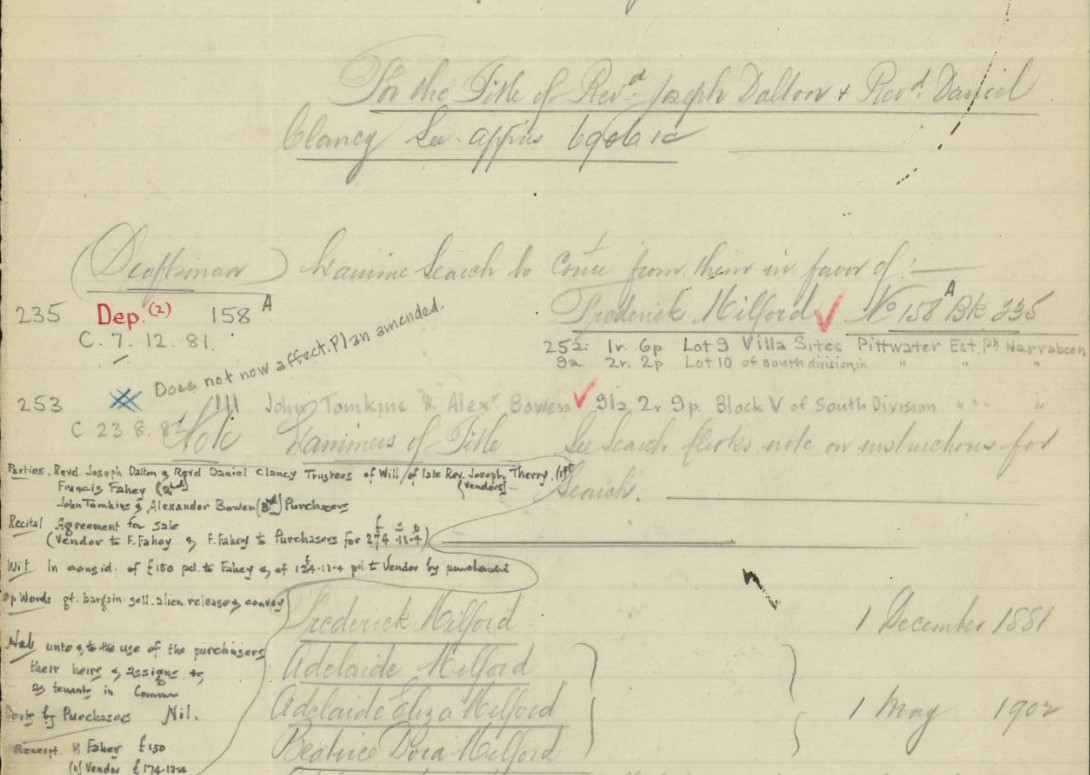 For the Title of Revd. Joseph Dalton & Revd. Daniel
Clancy See appns
(Draftsman) Examine Search to come from them in favor of:—
235 Dep. (2) 158 A Frederick Milford ✓ No 158 A Bk 235
C. 7. 12. 81.
252: 1r. 6p Lot 9 Villa Sites Pittwater Est. Ph Narrabeen
9a 2r. 2p Lot 10 of South division in " " "
Does not now affect. Plan amended.
253 111 John Tomkins & Alexr Bowen ✓ 91a 2r 9p. Block V of South Division " " "
C. 23. 8. 82
Note Examiners of Title See Search Clerks note on instructions for
Search.
Parties. Revd. Joseph Dalton & Revd Daniel Clancy Trustees of Will of late Rev. Joseph Therry (1st
(Vendors)
Francis Fahey (2nd)
John Tomkins & Alexander Bowen (3rd) Purchasers
Recital Agreement for sale £ s D
(Vendor to F. Fahey & F. Fahey to Purchasers for 274-13-4)
Wit. In consid. of £150 pd. to Fahey & of £124-13-4 pd to Vendor by purchasers
Op Words gt. bargain. sell. alien release & convey
Frederick Milford 1 December 1881
Hab unto & to the use of the purchasers
their heirs & assigns as
as tenants in Common
Adelaide Milford
Adelaide Eliza Milford 1 May 1902
Beatrice Dora Milford
Covts by Purchasers Nil.
Receipt. Fahey £150
Vendor